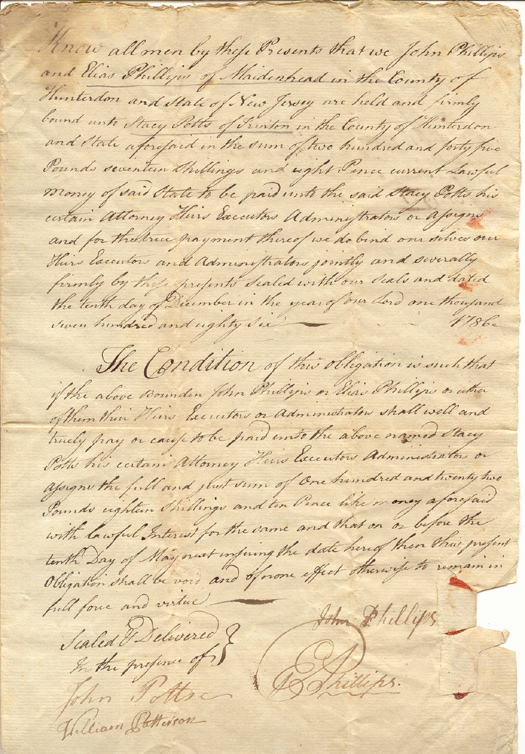 Know all men by these Presents that we John Phillips
and Elias Phillips of Maidenhead in the County of
Hunterdon and State of New Jersey are held and firmly
bound unto Stacy Potts of Trenton in the County of Hunterdon
and State aforesaid in the sum of two hundred and forty five
Pounds seventeen Shillings and eight Pence current Lawful
money of said State to be paid unto the said Stacy Potts his
certain Attorney Heirs Executors Administrators or assigns
and for the true payment thereof we do bind our selves our
Heirs Executors and Administrators jointly and severally
firmly by these presents sealed with our Seals and dated
the tenth day of December in the year of our Lord one thousand
seven hundred and eighty six — 1786
The Condition of this obligation is such that
if the above Bounden John Phillips or Elias Phillips or either
of them their Heirs Executors or Administrators shall well and
truely pay or cause to be paid unto the above named Stacy
Potts his certain Attorney Heirs Executors Administrators or
assigns the full and just sum of One hundred and twenty two
Pounds eighteen Shillings and ten Pence like money aforesaid
with lawful Interest for the same and that on or before the
tenth Day of May next ensuing the date hereof then this present
Obligation shall be void and of none effect otherwise to remain in
full force and virtue —
Sealed & Delivered
In the presence of
John Phillips
E Phillips.
John Potts
William Patterson